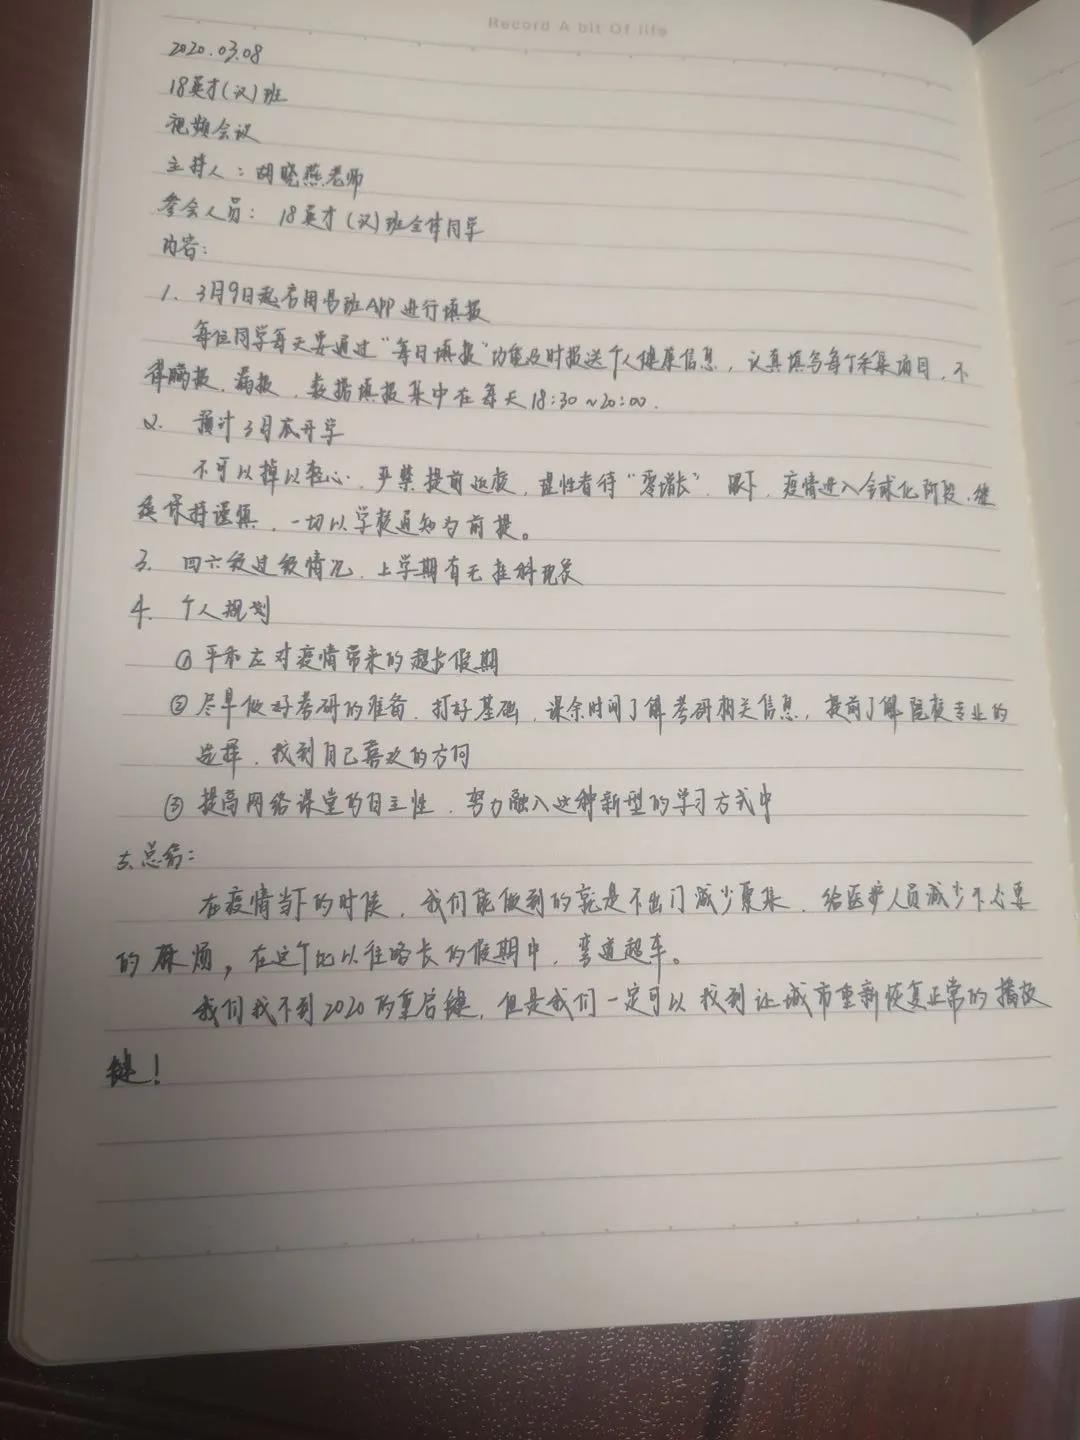 Record A bit Of life
2020.03.08
18英才(汉)班
视频会议
主持人：胡晓燕老师
参会人员： 18英才(汉)班全体同学
内容：
1. 3月9日起启用易班APP进行填报
每位同学每天要通过“每日填报”功能及时报送个人健康信息，认真填写每个采集项目，不
得瞒报、漏报，数据填报集中在每天18:30~20:00.
2. 预计3月底开学
不可以掉以轻心，严禁提前返校，理性看待“零增长”，眼下，疫情进入全球化阶段，继
续保持谨慎，一切以学校通知为前提。
3. 四六级过级情况、上学期有无挂科现象
4. 个人规划
① 平和应对疫情带来的超长假期
② 尽早做好考研的准备，打好基础，课余时间了解考研相关信息，提前了解院校专业的
选择，找到自己喜欢的方向
③ 提高网络课堂的自主性，努力融入这种新型的学习方式中
5.总结：
在疫情当下的时候，我们能做到的就是不出门减少聚集，给医护人员减少不必要
的麻烦，在这个比以往略长的假期中，弯道超车。
我们找不到2020的重启键，但是我们一定可以找到让城市重新恢复正常的播放
键！